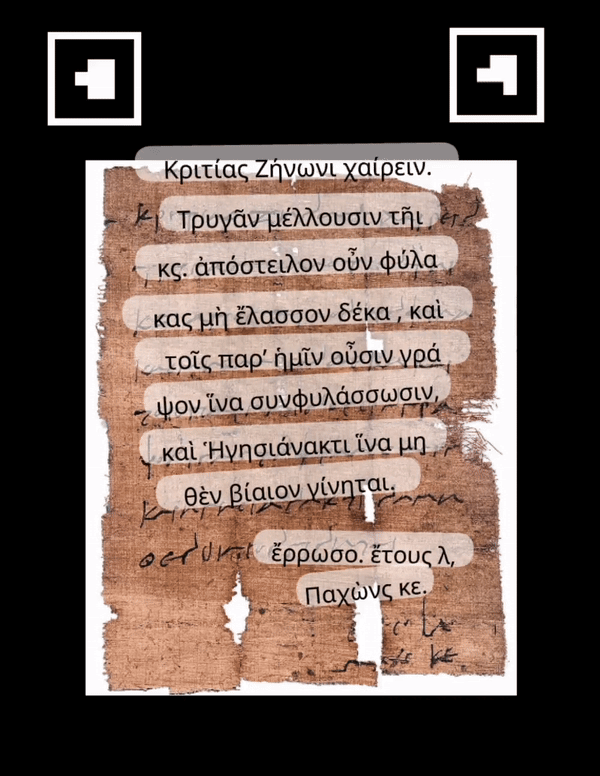 Κριτίας Ζήνωνι χαίρειν.
Τρυγᾶν μέλλουσιν τῆι
κς. ἀπόστειλον οὖν φύλα
κας μὴ ἔλασσον δέκα , καὶ
τοῖς παρ’ ἡμῖν οὖσιν γρά
ψον ἵνα συνφυλάσσωσιν,
καὶ Ἡγησιάνακτι ἵνα μη
θὲν βίαιον γίνηται.
ἔρρωσο. ἔτους λ,
Παχὼνς κε.